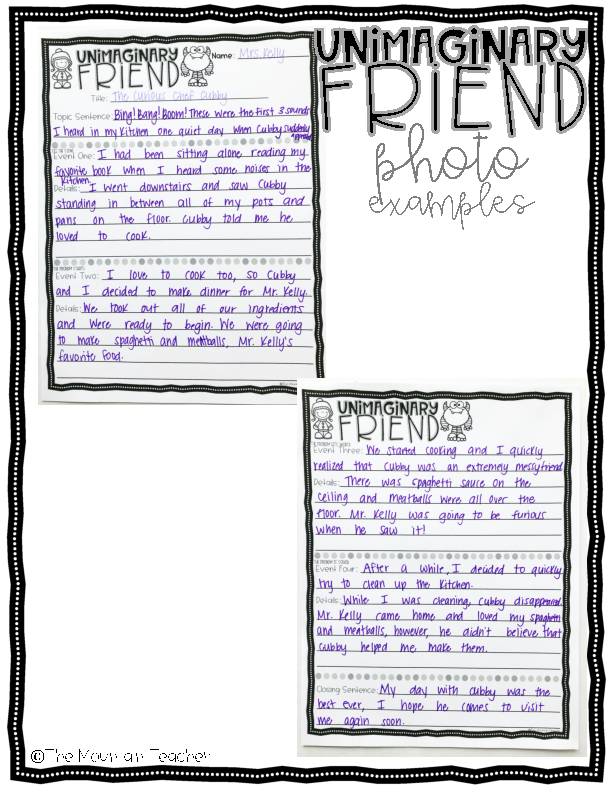 UNIMAGINARY
FRIEND
photo
examples
UNIMAGINARY
FRIEND
Name: Mrs. Kelly
Title: The Curious Chef Cubby
Topic Sentence: Bing! Bang! Boom! These were the first 3 sounds
I heard in my kitchen one quiet day when Cubby suddenly
Event One: I had been sitting alone reading my
favorite book when I heard some noises in the
kitchen.
Details: I went downstairs and saw Cubby
standing in between all of my pots and
pans on the floor. Cubby told me he
loved to cook.
Event Two: I love to cook too, so Cubby
and I decided to make dinner for Mr. Kelly.
Details: We took out all of our ingredients
and were ready to begin. We were going
to make spaghetti and meatballs, Mr. Kelly's
favorite food.
UNIMAGINARY
FRIEND
Event Three: We started cooking and I quickly
realized that Cubby was an extremely messy friend.
Details: There was spaghetti sauce on the
ceiling and meatballs were all over the
floor. Mr. Kelly was going to be furious
when he saw it!
Event Four: After a while, I decided to quickly
try to clean up the kitchen.
Details: While I was cleaning, Cubby disappeared.
Mr. Kelly came home and loved my spaghetti
and meatballs, however, he didn't believe that
Cubby helped me make them.
Closing Sentence: My day with Cubby was the
best ever, I hope he comes to visit
me again soon.
©The Mountain Teacher